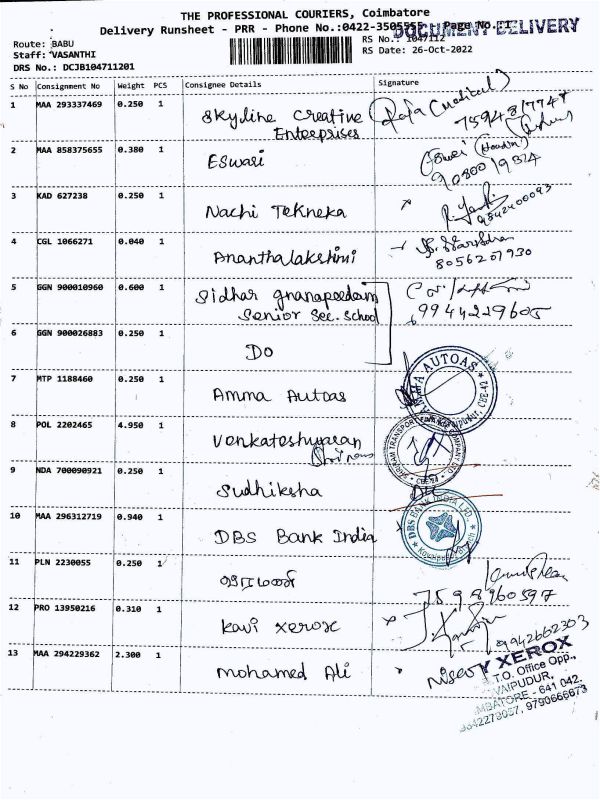 THE PROFESSIONAL COURIERS, Coimbatore
Delivery Runsheet - PRR - Phone No.:0422-3505555 Page No.:1
DOCUMENT DELIVERY
Route: BABU
RS No.: 1047112
Staff: VASANTHI
RS Date: 26-Oct-2022
DRS No.: DCJB104711201
S No Consignment No Weight PCS Consignee Details Signature
1 MAA 293337469 0.250 1 Skyline Creative Enterprises
(Medical)
2 MAA 858375655 0.380 1 Eswari
3 KAD 627238 0.250 1 Nachi Tekneka
9842400093
4 CGL 1066271 0.040 1 Ananthalakshmi
8056207930
5 GGN 900010960 0.600 1 Sidhar gnanapeedam
Senior Sec. School
9944229605
6 GGN 900026883 0.250 1 DO
7 MTP 1188460 0.250 1 Amma Autoas
AUTOAS
8 POL 2202465 4.950 1 Venkateshwaran
9 NDA 700090921 0.250 1 Sudhiksha
10 MAA 296312719 0.940 1 DBS Bank India
DBS BANK INDIA LTD.
11 PLN 2230055 0.250 1
7598960597
12 PRO 13950216 0.310 1 Kavi xerox
9942662303
13 MAA 294229362 2.300 1 Mohamed Ali
Y XEROX
T.O. Office Opp.,
VAIPUDUR,
MBATORE - 641 042.
9790666673